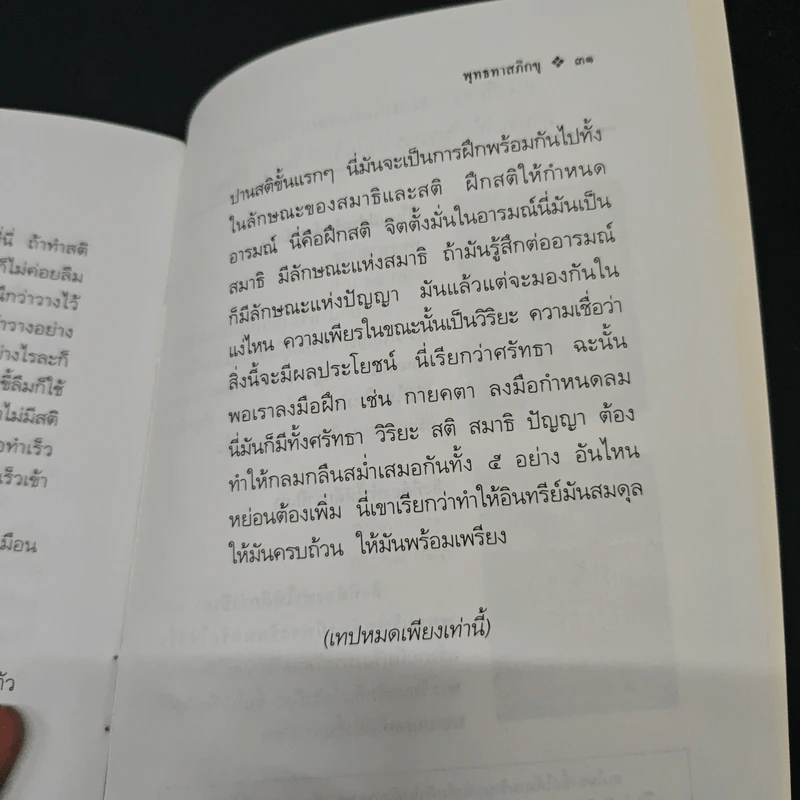 นี่ ถ้าทำสติ
ก็ไม่ค่อยลืม
นึกว่าวางไว้
วางอย่าง
างไรละก็
ขี้ลืมก็ใช้
ไม่มีสติ
ทำเร็ว
ร็วเข้า
มือน
ตัว
พุทธทาสภิกขุ ❖ ๓๑
ปานสติขั้นแรกๆ นี่มันจะเป็นการฝึกพร้อมกันไปทั้ง
ในลักษณะของสมาธิและสติ ฝึกสติให้กำหนด
อารมณ์ นี่คือฝึกสติ จิตตั้งมั่นในอารมณ์นี่มันเป็น
สมาธิ มีลักษณะแห่งสมาธิ ถ้ามันรู้สึกต่ออารมณ์
ก็มีลักษณะแห่งปัญญา มันแล้วแต่จะมองกันใน
แง่ไหน ความเพียรในขณะนั้นเป็นวิริยะ ความเชื่อว่า
สิ่งนี้จะมีผลประโยชน์ นี่เรียกว่าศรัทธา ฉะนั้น
พอเราลงมือฝึก เช่น กายคตา ลงมือกำหนดลม
นี่มันก็มีทั้งศรัทธา วิริยะ สติ สมาธิ ปัญญา ต้อง
ทำให้กลมกลืนสม่ำเสมอกันทั้ง ๕ อย่าง อันไหน
หย่อนต้องเพิ่ม นี่เขาเรียกว่าทำให้อินทรีย์มันสมดุล
ให้มันครบถ้วน ให้มันพร้อมเพรียง
(เทปหมดเพียงเท่านี้)